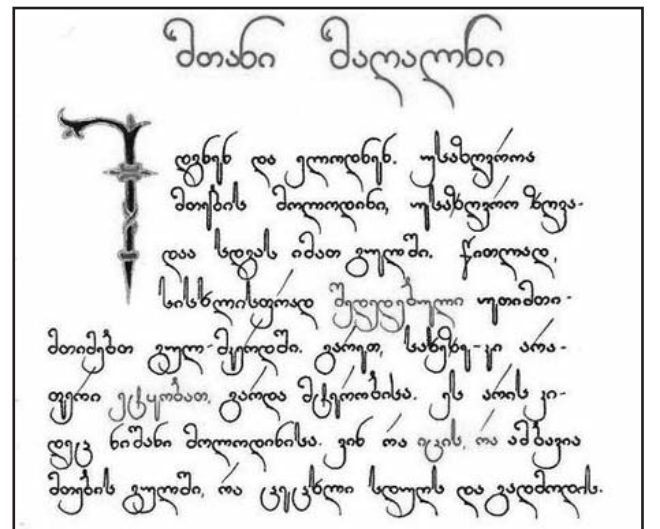 მთანი მაღალნი
იდგნენ და ელოდნენ. უსაზღვროა
მთების მოლოდინი, უსაზღვრო ზღვა-
დაა სდგას იმათ გულში. წითლად,
სისხლისფრად შედედებული უთიმთი-
მთიმებთ გულ-მკერდში. გარეთ, სახეზე-კი არა-
ფერი ეტყობათ, გარდა ეს არის კი-
დეც ნიშანი მოლოდინისა. ვინ რა იცის, რა ამბავია
მთების გულში, რა ცეცხლი სდუღს და გადმოდის.